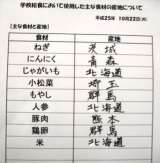 学校給食において使用した主な食材の産地について
平成25年 10月22日(火)
【主な食材と産地】
食材 産地
ねぎ 茨城
にんにく 青森
じゃがいも 北海道
小松菜 埼玉
もやし 群馬
人参 北海道
豚肉 熊本
鶏卵 群馬
米 北海道